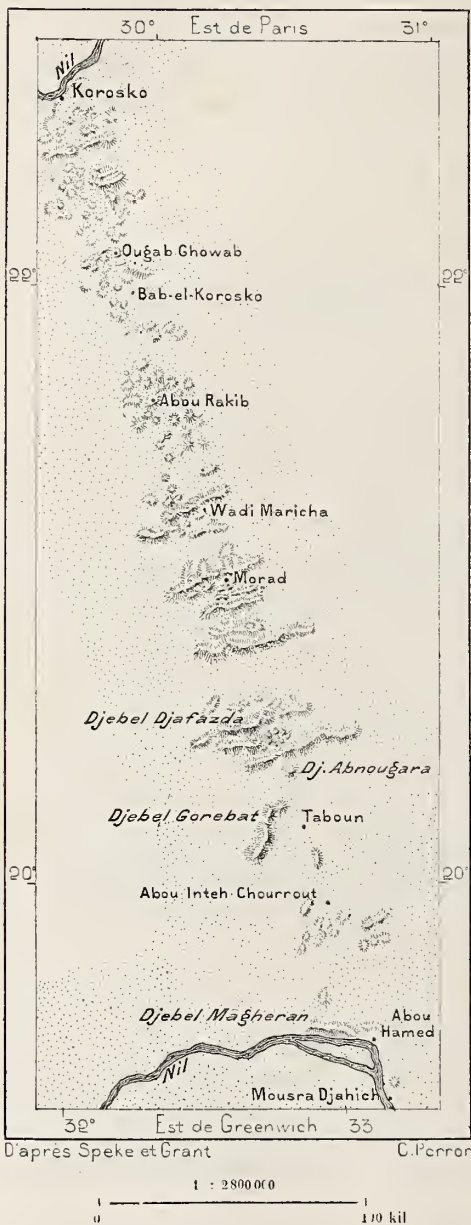 30° Est de Paris 31°
Nil
Korosko
Ougab Ghowab
22° 22°
Bab-el-Korosko
Abou Rakib
Wadi Maricha
Morad
Djebel Djafazda
Dj. Abnougara
Djebel Gorebat Taboun
20° 20°
Abou Inteh Chourrout
Djebel Magheran Abou
Hamed
Nil
Mousra Djahich
32° Est de Greenwich 33
D'après Speke et Grant C. Perron
1 : 2800 000
0 100 kil